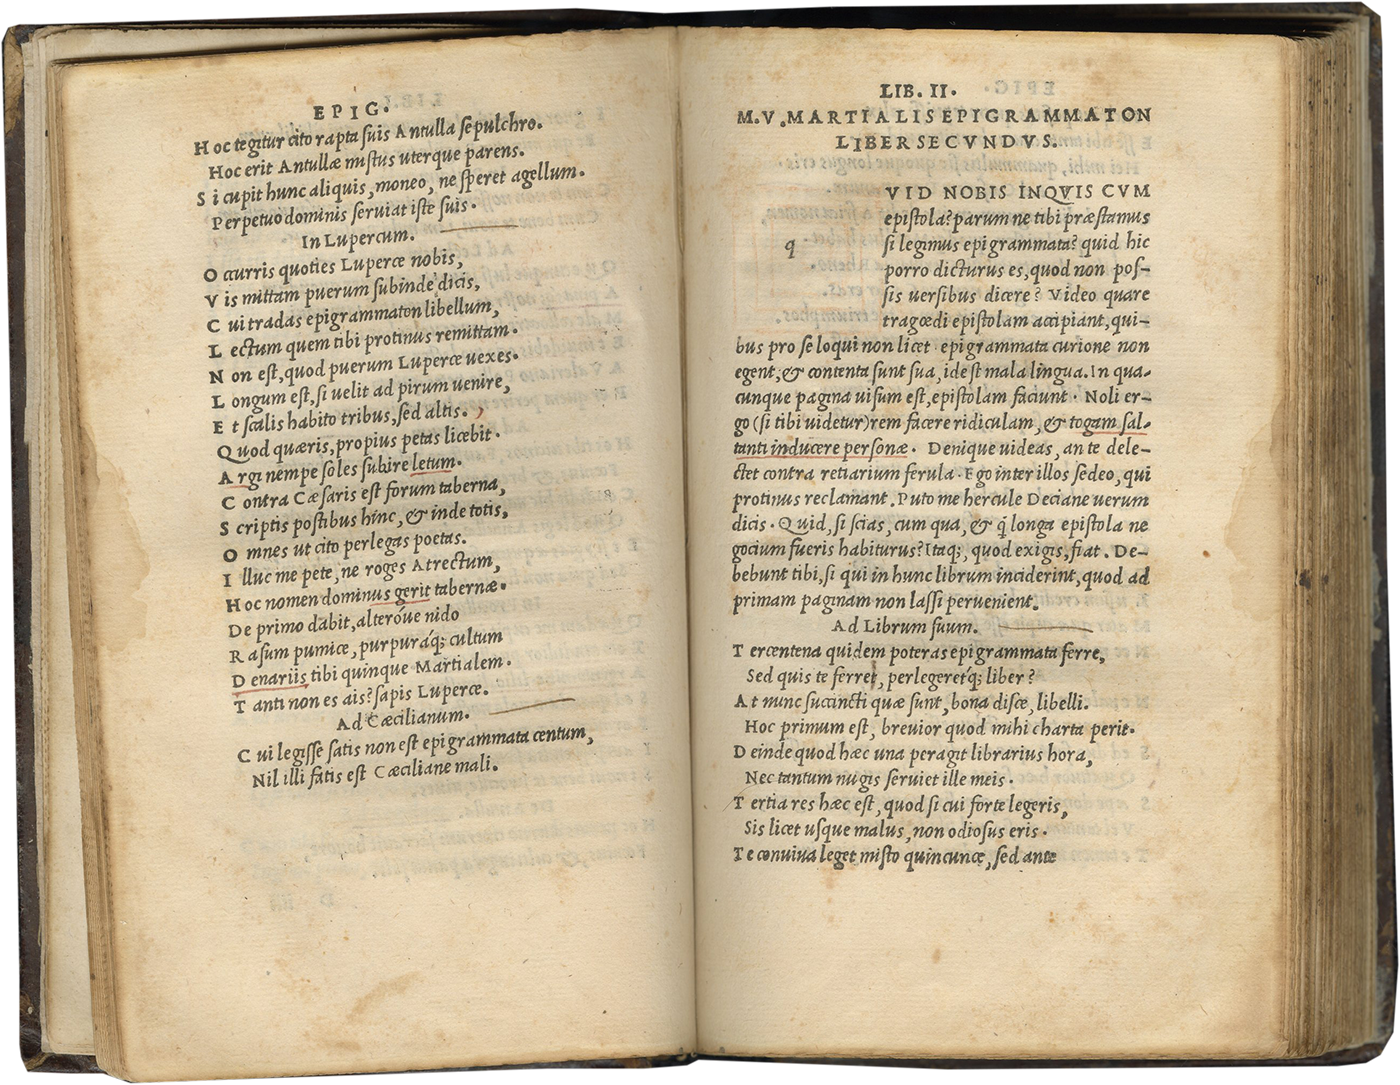 EPIG.
H oc tegitur cito rapta suis Antulla sepulchro.
Hoc erit Antullæ mistus uterque parens.
S i cupit hunc aliquis, moneo, ne speret agellum.
Perpetuo dominis seruiat iste suis.
In Lupercum.
O ccurris quoties Luperce nobis,
V is mittam puerum subinde dicis,
C ui tradas epigrammaton libellum,
L ectum quem tibi protinus remittam.
N on est, quod puerum Luperce uexes.
L ongum est, si uelit ad pirum uenire,
E t scalis habito tribus, sed altis.
Quod quæris, propius petas licebit.
A rgi nempe soles subire letum.
C ontra Cæsaris est forum taberna,
S criptis postibus hinc, & inde totis,
O mnes ut cito perlegas poetas.
I lluc me pete, ne roges Atrectum,
H oc nomen dominus gerit tabernæ.
De primo dabit, alteróue nido
R asum pumice, purpuráq; cultum
D enariis tibi quinque Martialem.
T anti non es ais? sapis Luperce.
Ad Cæcilianum.
C ui legisse satis non est epigrammata centum,
Nil illi satis est Cæciliane mali.
LIB. II.
M. V. MARTIALIS EPIGRAMMATON
LIBER SECVNDVS.
q
VID NOBIS INQVIS CVM
epistola? parum ne tibi præstamus
si legimus epigrammata? quid hic
porro dicturus es, quod non pos-
sis uersibus dicere? Video quare
tragœdi epistolam accipiant, qui-
bus pro se loqui non licet. epigrammata curione non
egent, & contenta sunt sua, id est mala lingua. In qua-
cunque pagina uisum est, epistolam faciunt. Noli er-
go (si tibi uidetur) rem facere ridiculam, & togam sal-
tanti inducere personæ. Denique uideas, an te dele-
ctet contra retiarium ferula. Ego inter illos sedeo, qui
protinus reclamant. Puto me hercule Deciane uerum
dicis. Quid, si scias, cum qua, & q̃ longa epistola ne
gocium fueris habiturus? Itaq;, quod exigis, fiat. De-
bebunt tibi, si qui in hunc librum inciderint, quod ad
primam paginam non lassi peruenient.
Ad Librum suum.
T ercentena quidem poteras epigrammata ferre,
Sed quis te ferret, perlegeret́q; liber?
A t nunc succincti quæ sunt, bona disce, libelli.
Hoc primum est, breuior quod mihi charta perit.
D einde quod hæc una peragit librarius hora,
Nec tantum nugis seruiet ille meis.
T ertia res hæc est, quod si cui forte legeris,
Sis licet usque malus, non odiosus eris.
T e conuiua leget misto quincunce, sed ante